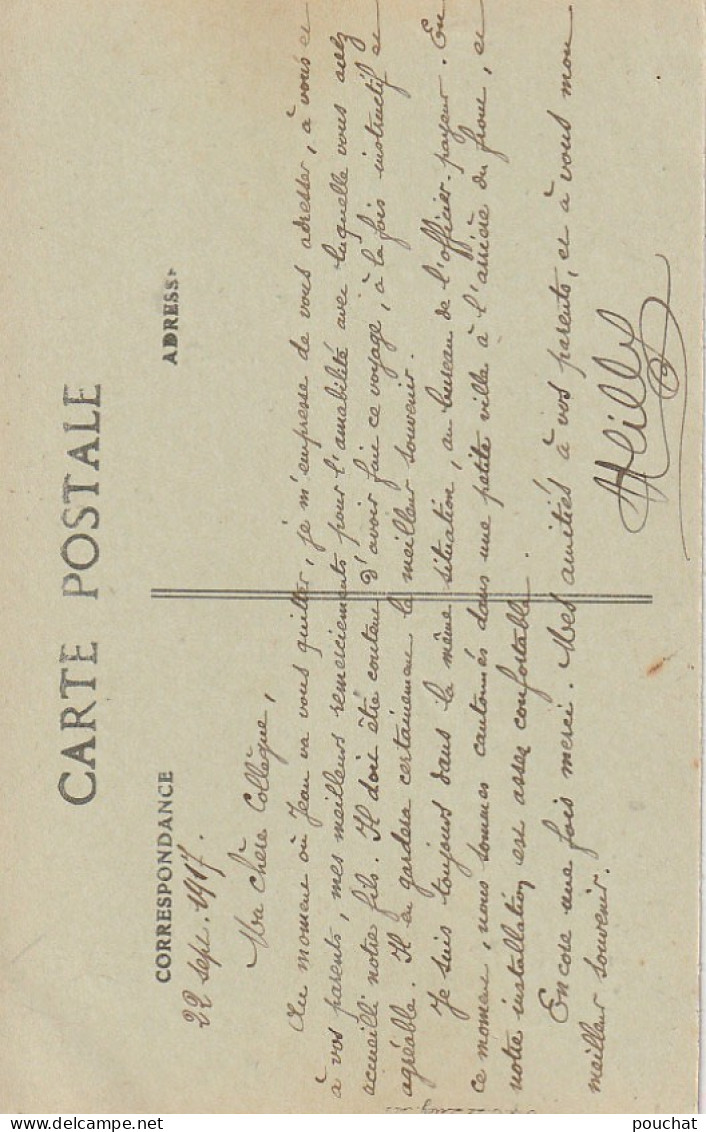 CARTE POSTALE
CORRESPONDANCE
ADRESSE
22 sept. 1917.
Ma chère Collègue,
Au moment où Jean va vous quitter, je m'empresse de vous adresser, à vous et
à vos parents, mes meilleurs remerciements pour l'amabilité avec laquelle vous avez
accueilli notre fils. Il doit être content d'avoir fait ce voyage, à la fois instructif et
agréable. Il en gardera certainement le meilleur souvenir.
Je suis toujours dans la même situation, au bureau de l'officier-payeur. En
ce moment, nous sommes cantonnés dans une petite ville à l'arrière du front, et
notre installation est assez confortable.
Encore une fois merci. Mes amitiés à vos parents, et à vous mon
meilleur souvenir.
pouchat